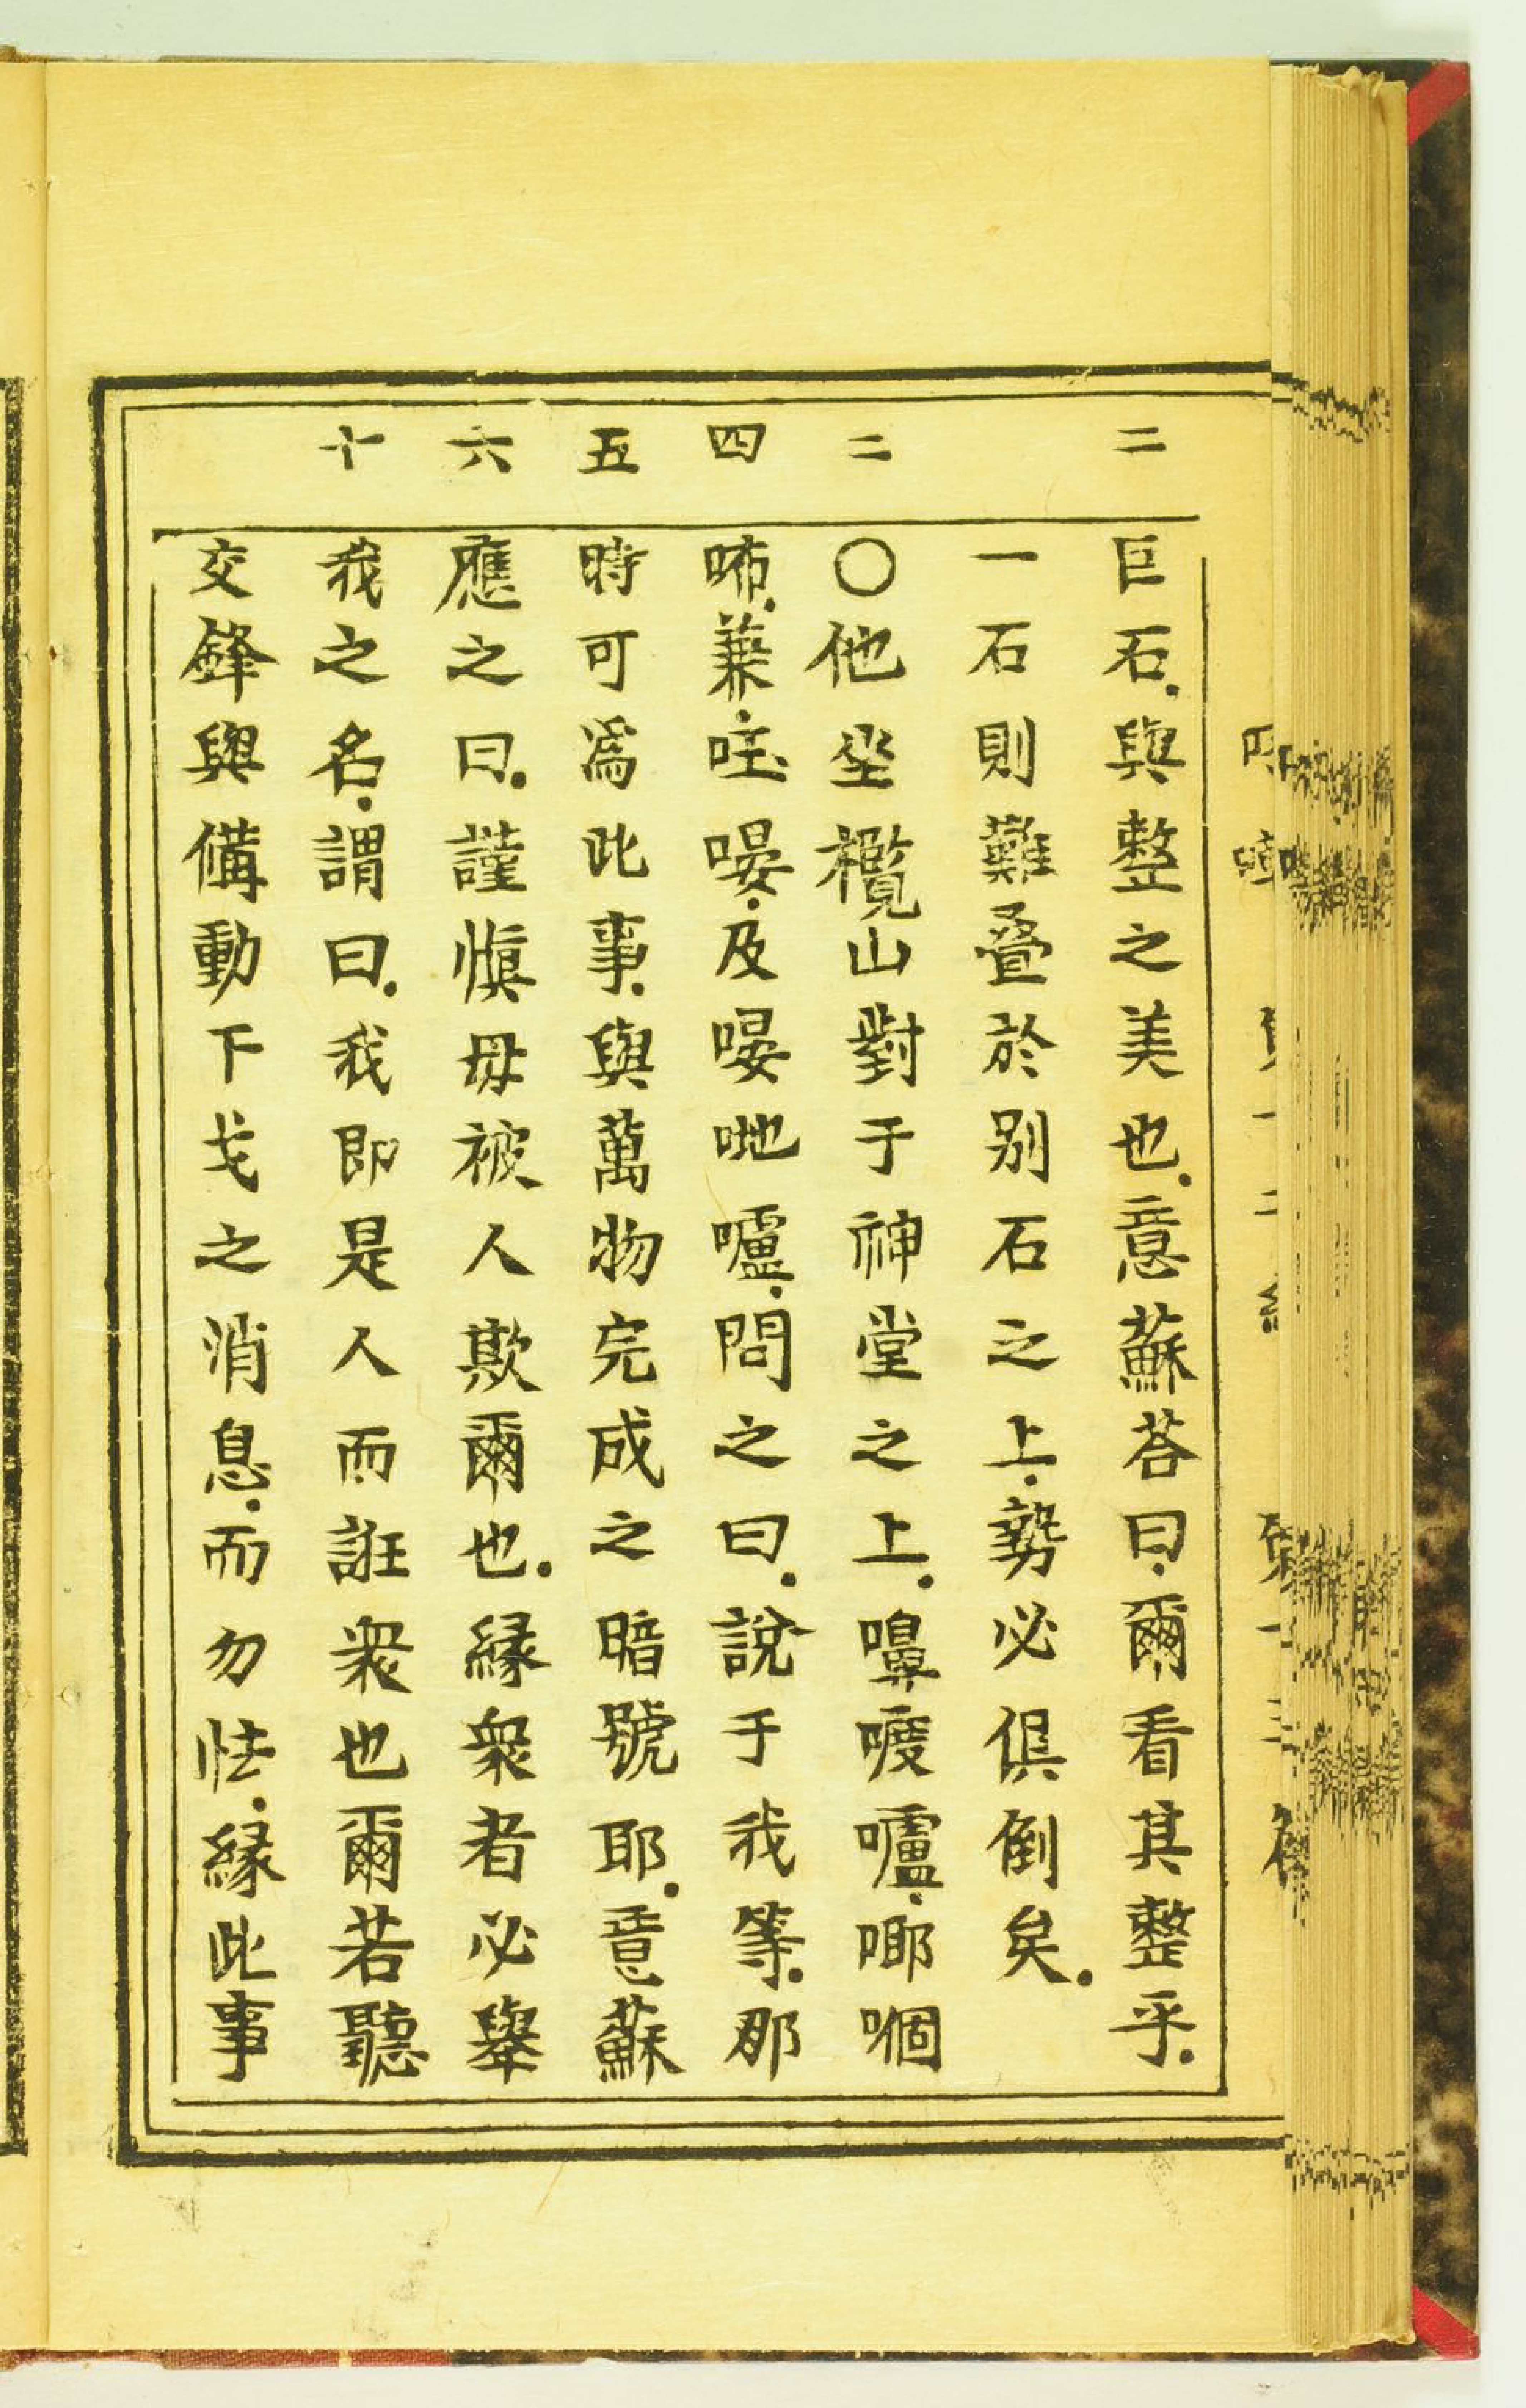 二
二
四
五
六
十
巨石與整之美也意蘇荅曰爾看其整乎
一石則難疊於別石之上勢必俱倒矣
〇他坐欖山對于神堂之上嚊㗭嚧㗿啯
㗑兼㕵㬫及㬫哋嚧問之曰說于我等那
時可爲此事與萬物完成之暗號耶意蘇
應之曰謹慎毋被人欺爾也緣衆者必舉
我之名謂曰我即是人而誑衆也爾若聽
交鋒與備動干戈之消息而勿怯緣此事